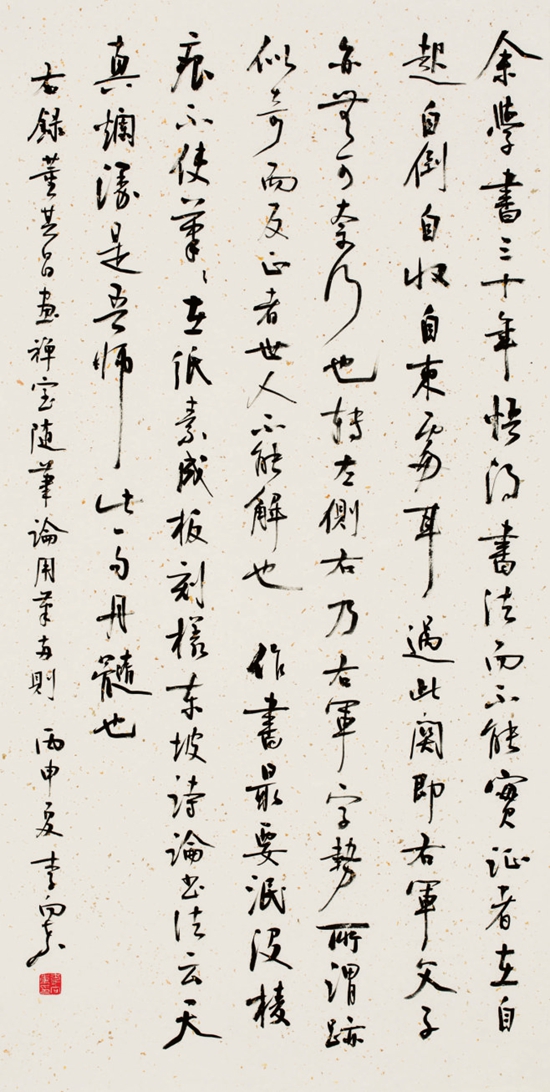 余學書三十年悟得書法而不能實証者在自
起自倒自收自束處耳過此関即右軍父子
亦無可奈何也轉左側右乃右軍字勢所謂跡
似奇而反正者世人不能解也 作書最要泯没棱
痕不使筆〻在紙素成板刻樣東坡詩論書法云天
真爛漫是吾師 此一句丹髓也
右錄董其昌畫禪室隨筆論用筆兩則 丙申夏 李